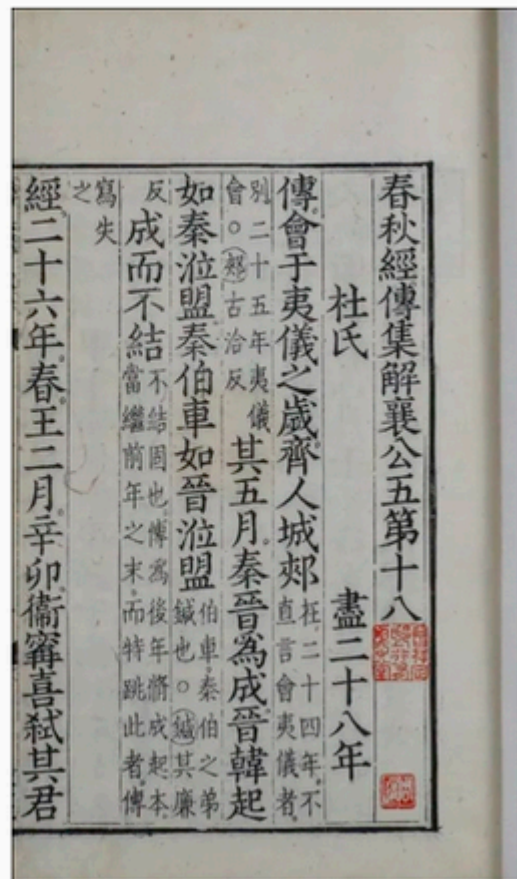 春秋經傳集解襄公五第十八
杜氏 盡二十八年
傳會于夷儀之歲齊人城郟在二十四年不直言會夷儀者
別二十五年夷儀會○郟古洽反其五月秦晉爲成晉韓起
如秦涖盟秦伯車如晉涖盟伯車秦伯之弟鍼也○鍼其廉
反成而不結不結固也傳爲後年脩成起本當繼前年之末而特跳此者傳
寫失之
經二十六年春王二月辛卯衞甯喜弒其君